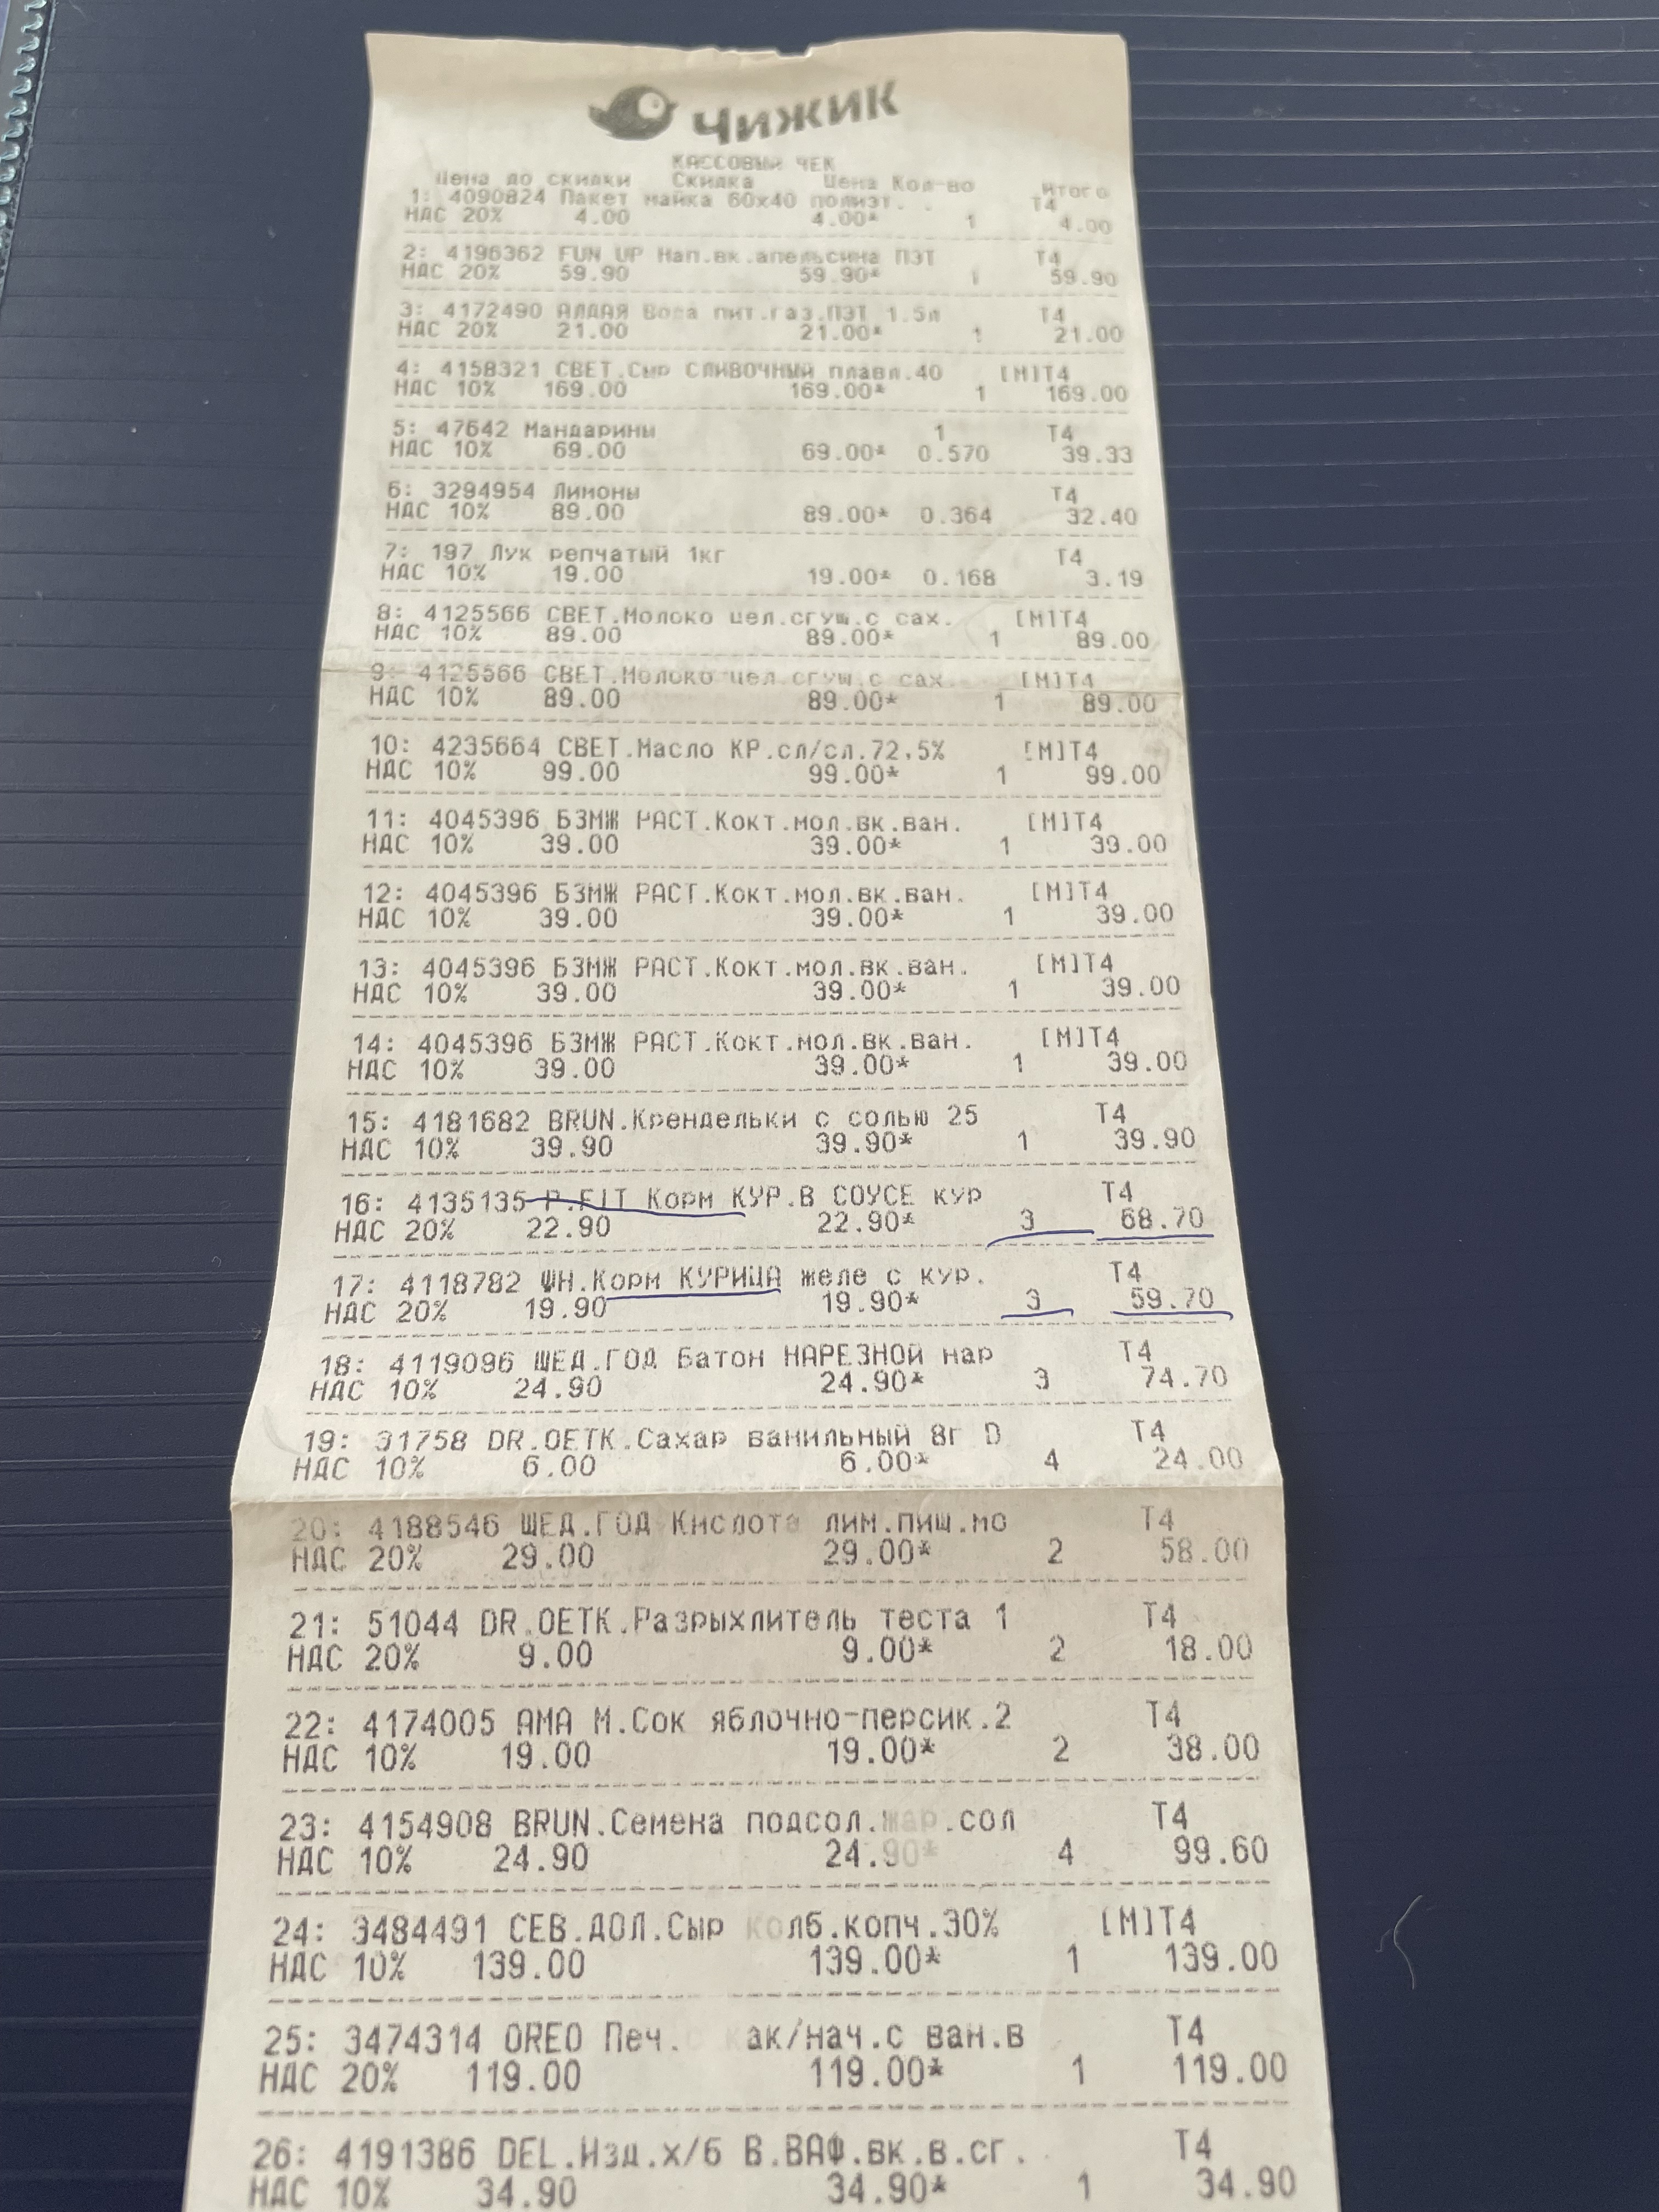 ЧИЖИК
КАССОВЫЙ ЧЕК
Цена до скидки Скидка Цена Кол-во Итого
1: 4090824 Пакет майка 60х40 полиэт. . Т4
НДС 20% 4.00 4.00* 1 4.00
2: 4196362 FUN UP Нап.вк.апельсина ПЭТ Т4
НДС 20% 59.90 59.90* 1 59.90
3: 4172490 АЛДАЯ Вода пит.газ.ПЭТ 1.5л Т4
НДС 20% 21.00 21.00* 1 21.00
4: 4158321 СВЕТ.Сыр СЛИВОЧНЫЙ плавл.40 [М]Т4
НДС 10% 169.00 169.00* 1 169.00
5: 47642 Мандарины 1 Т4
НДС 10% 69.00 69.00* 0.570 39.33
6: 3294954 Лимоны Т4
НДС 10% 89.00 89.00* 0.364 32.40
7: 197 Лук репчатый 1кг Т4
НДС 10% 19.00 19.00* 0.168 3.19
8: 4125566 СВЕТ.Молоко цел.сгущ.с сах. [М]Т4
НДС 10% 89.00 89.00* 1 89.00
9: 4125566 СВЕТ.Молоко цел.сгущ.с сах. [М]Т4
НДС 10% 89.00 89.00* 1 89.00
10: 4235664 СВЕТ.Масло КР.сл/сл.72,5% [М]Т4
НДС 10% 99.00 99.00* 1 99.00
11: 4045396 БЗМЖ РАСТ.Кокт.мол.вк.ван. [М]Т4
НДС 10% 39.00 39.00* 1 39.00
12: 4045396 БЗМЖ РАСТ.Кокт.мол.вк.ван. [М]Т4
НДС 10% 39.00 39.00* 1 39.00
13: 4045396 БЗМЖ РАСТ.Кокт.мол.вк.ван. [М]Т4
НДС 10% 39.00 39.00* 1 39.00
14: 4045396 БЗМЖ РАСТ.Кокт.мол.вк.ван. [М]Т4
НДС 10% 39.00 39.00* 1 39.00
15: 4181682 BRUN.Крендельки с солью 25 Т4
НДС 10% 39.90 39.90* 1 39.90
16: 4135135 P.FIT Корм КУР.В СОУСЕ кур Т4
НДС 20% 22.90 22.90* 3 68.70
17: 4118782 ШН.Корм КУРИЦА желе с кур. Т4
НДС 20% 19.90 19.90* 3 59.70
18: 4119096 ЩЕД.ГОД Батон НАРЕЗНОЙ нар Т4
НДС 10% 24.90 24.90* 3 74.70
19: 31758 DR.OETK.Сахар ванильный 8г D Т4
НДС 10% 6.00 6.00* 4 24.00
20: 4188546 ЩЕД.ГОД Кислота лим.пищ.мо Т4
НДС 20% 29.00 29.00* 2 58.00
21: 51044 DR.OETK.Разрыхлитель теста 1 Т4
НДС 20% 9.00 9.00* 2 18.00
22: 4174005 АМА М.Сок яблочно-персик.2 Т4
НДС 10% 19.00 19.00* 2 38.00
23: 4154908 BRUN.Семена подсол.жар.сол Т4
НДС 10% 24.90 24.90* 4 99.60
24: 3484491 СЕВ.ДОЛ.Сыр колб.копч.30% [М]Т4
НДС 10% 139.00 139.00* 1 139.00
25: 3474314 OREO Печ. как/нач.с ван.в Т4
НДС 20% 119.00 119.00* 1 119.00
26: 4191386 DEL.Изд.х/б В.ВАФ.вк.в.сг. Т4
НДС 10% 34.90 34.90* 1 34.90